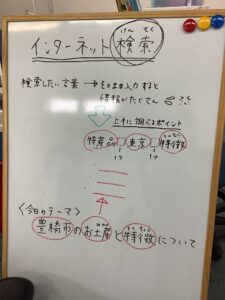 インターネット検索
けん さく
検索したい言葉 → そのまま入力すると
情報がたくさん
上手に調べるポイント
特産品□東京□特徴
とくちょう
1つ 1つ
〈今日のテーマ〉
豊橋市のお土産と特徴について